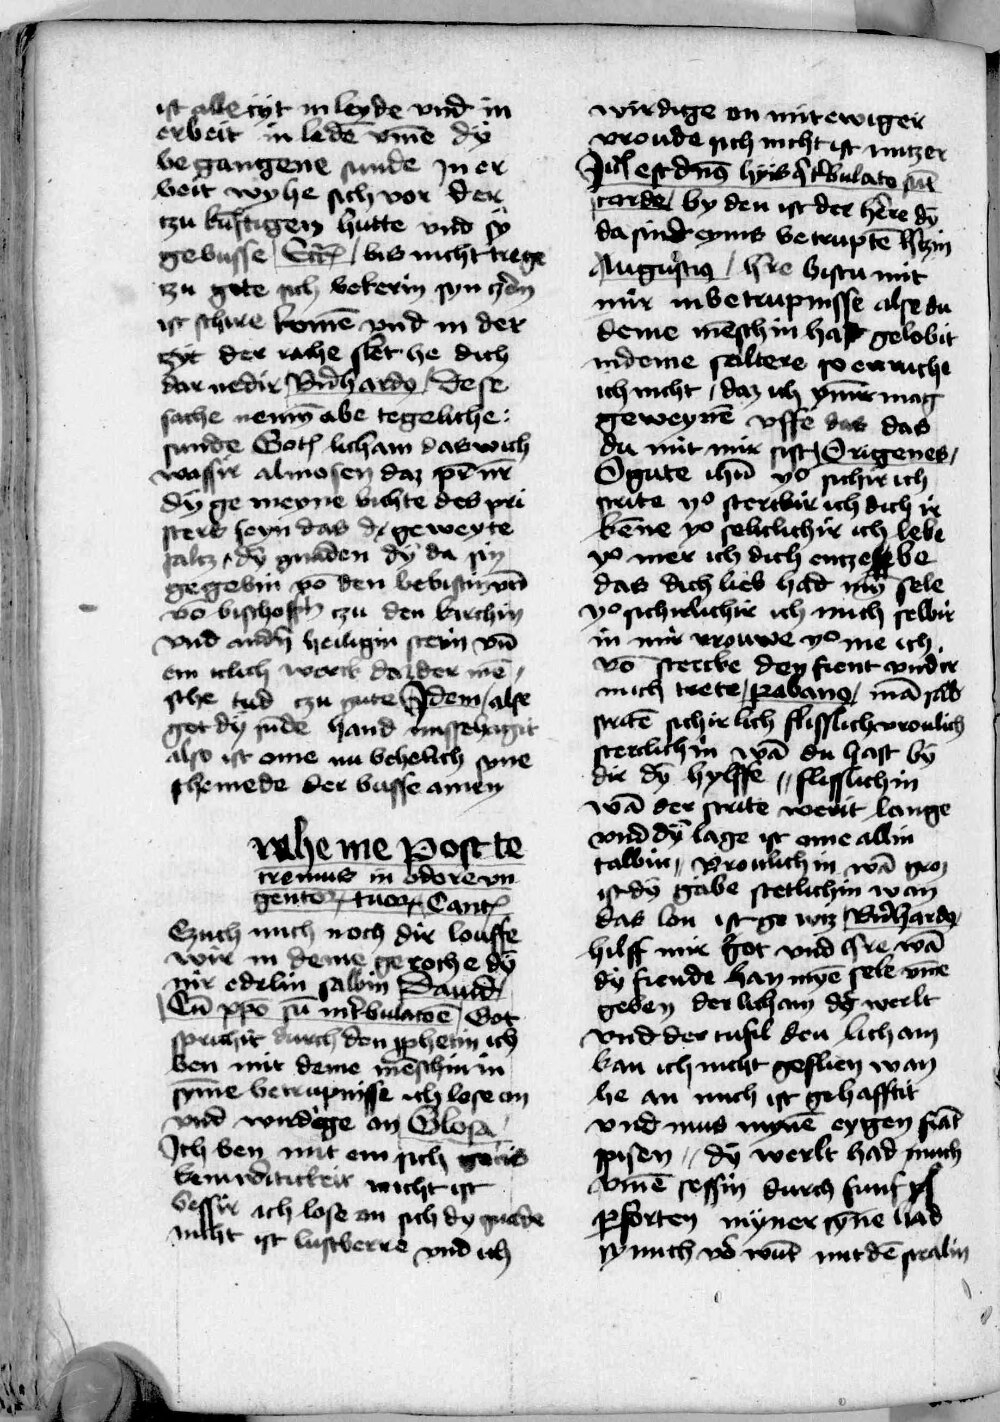 ist alle cyt in leyde vnd in
erbeit in ledē vm̄e dy
begangene sunde In er
beit wyhe sich vor der
tzu kūftigen hutte vnd sy
gebusse bis nicht trege
tzu gote sich bekerin syn czorn
ist schire komē vnd in der
zyt der rache slet he dich
dar nedir Bn̄hardꝯ Dese
sache nemī abe tegeliche
sunde Gotꝭ licham das wich
wassir almosen daz pr̄ nr̄
dy ge meyne bichte des pri
sters seyn das ge weyte
saltz dy gnaden dy da sin
gegebin vō den bebistin vn̄
vō bischofin czu den kirchin
vnd andn̄ heiligin stetin vn̄
ein iclich werck daz der mē
sche tud czu gute Idem alse
got dy sūde hand missehagit
also ist ome nu behelich syne
themede der busse amen
Trahe me post te
cremus in odore vn
gentoꝝ tuoꝝ Cantꝭ
Czuch mich noch dir louffe
wir in deme geroche dy
nir edelin salbin Dauid
Cū ip̄o sū in t̄bulacōe Got
sprichit durch den ꝓphetin ich
ben mit deme mēschin in
syn̄e betrupnisse ich lose en
vnd wirdige en Glosa
Ich ben mit em sich gotis
keinwˀtickeit nicht ist
bessir ich lose en sich dy gnede
nicht ist lustberre vnd ich
wirdige en mit ewiger
vroude sich nicht ist nutzer
Iux̄ est dn̄s hys q̄ t̄bulato sūt
corde by den ist der h̄re dy
da sind eyms betruptē h̄tzin
Augustꝯ h̄re bistu mit
mir in betrupnisse alse du
deme mēschin hast gelobit
in deme saltere so enruche
ich nicht daz ich ym̄ir mag
geweynē vffe das das
du mit mir sist Origenes
O gute ih̄u yo sichir ich
strite yo sterkir ich dich ir
kēne yo selclichir ich lebe
yo mer ich dich entzebe
das dich lieb had myn sele
yo sichirlichir ich mich selbir
in mir vrouwe yo me ich
vō stercke den fient vndir
mich trete Rabanꝯ mā sal
stritē sichirlich flisslich vroulich
sterclichin wā du hast by
dir dy hylffe flisslichin
wā der strite werit lange
vnd dy lage ist ome allin
talbin vroulichin wā groz
ist dy gabe stetlichin wan
das lon ist ge wiz Bn̄hardꝯ
hilff mir got vnd h̄re wā
dy fiende han myne sele vm̄e
geben der licham dy werlt
vnd der tufil den licham
kan ich nicht geflien wan
he an mich ist gehafftit
vnd mus mynē eygen fiāt
spisen dy werlt had mich
vm̄e sessin durch funf
pforten myner syn̄e had
sy mich vor wūt mit dē stralin